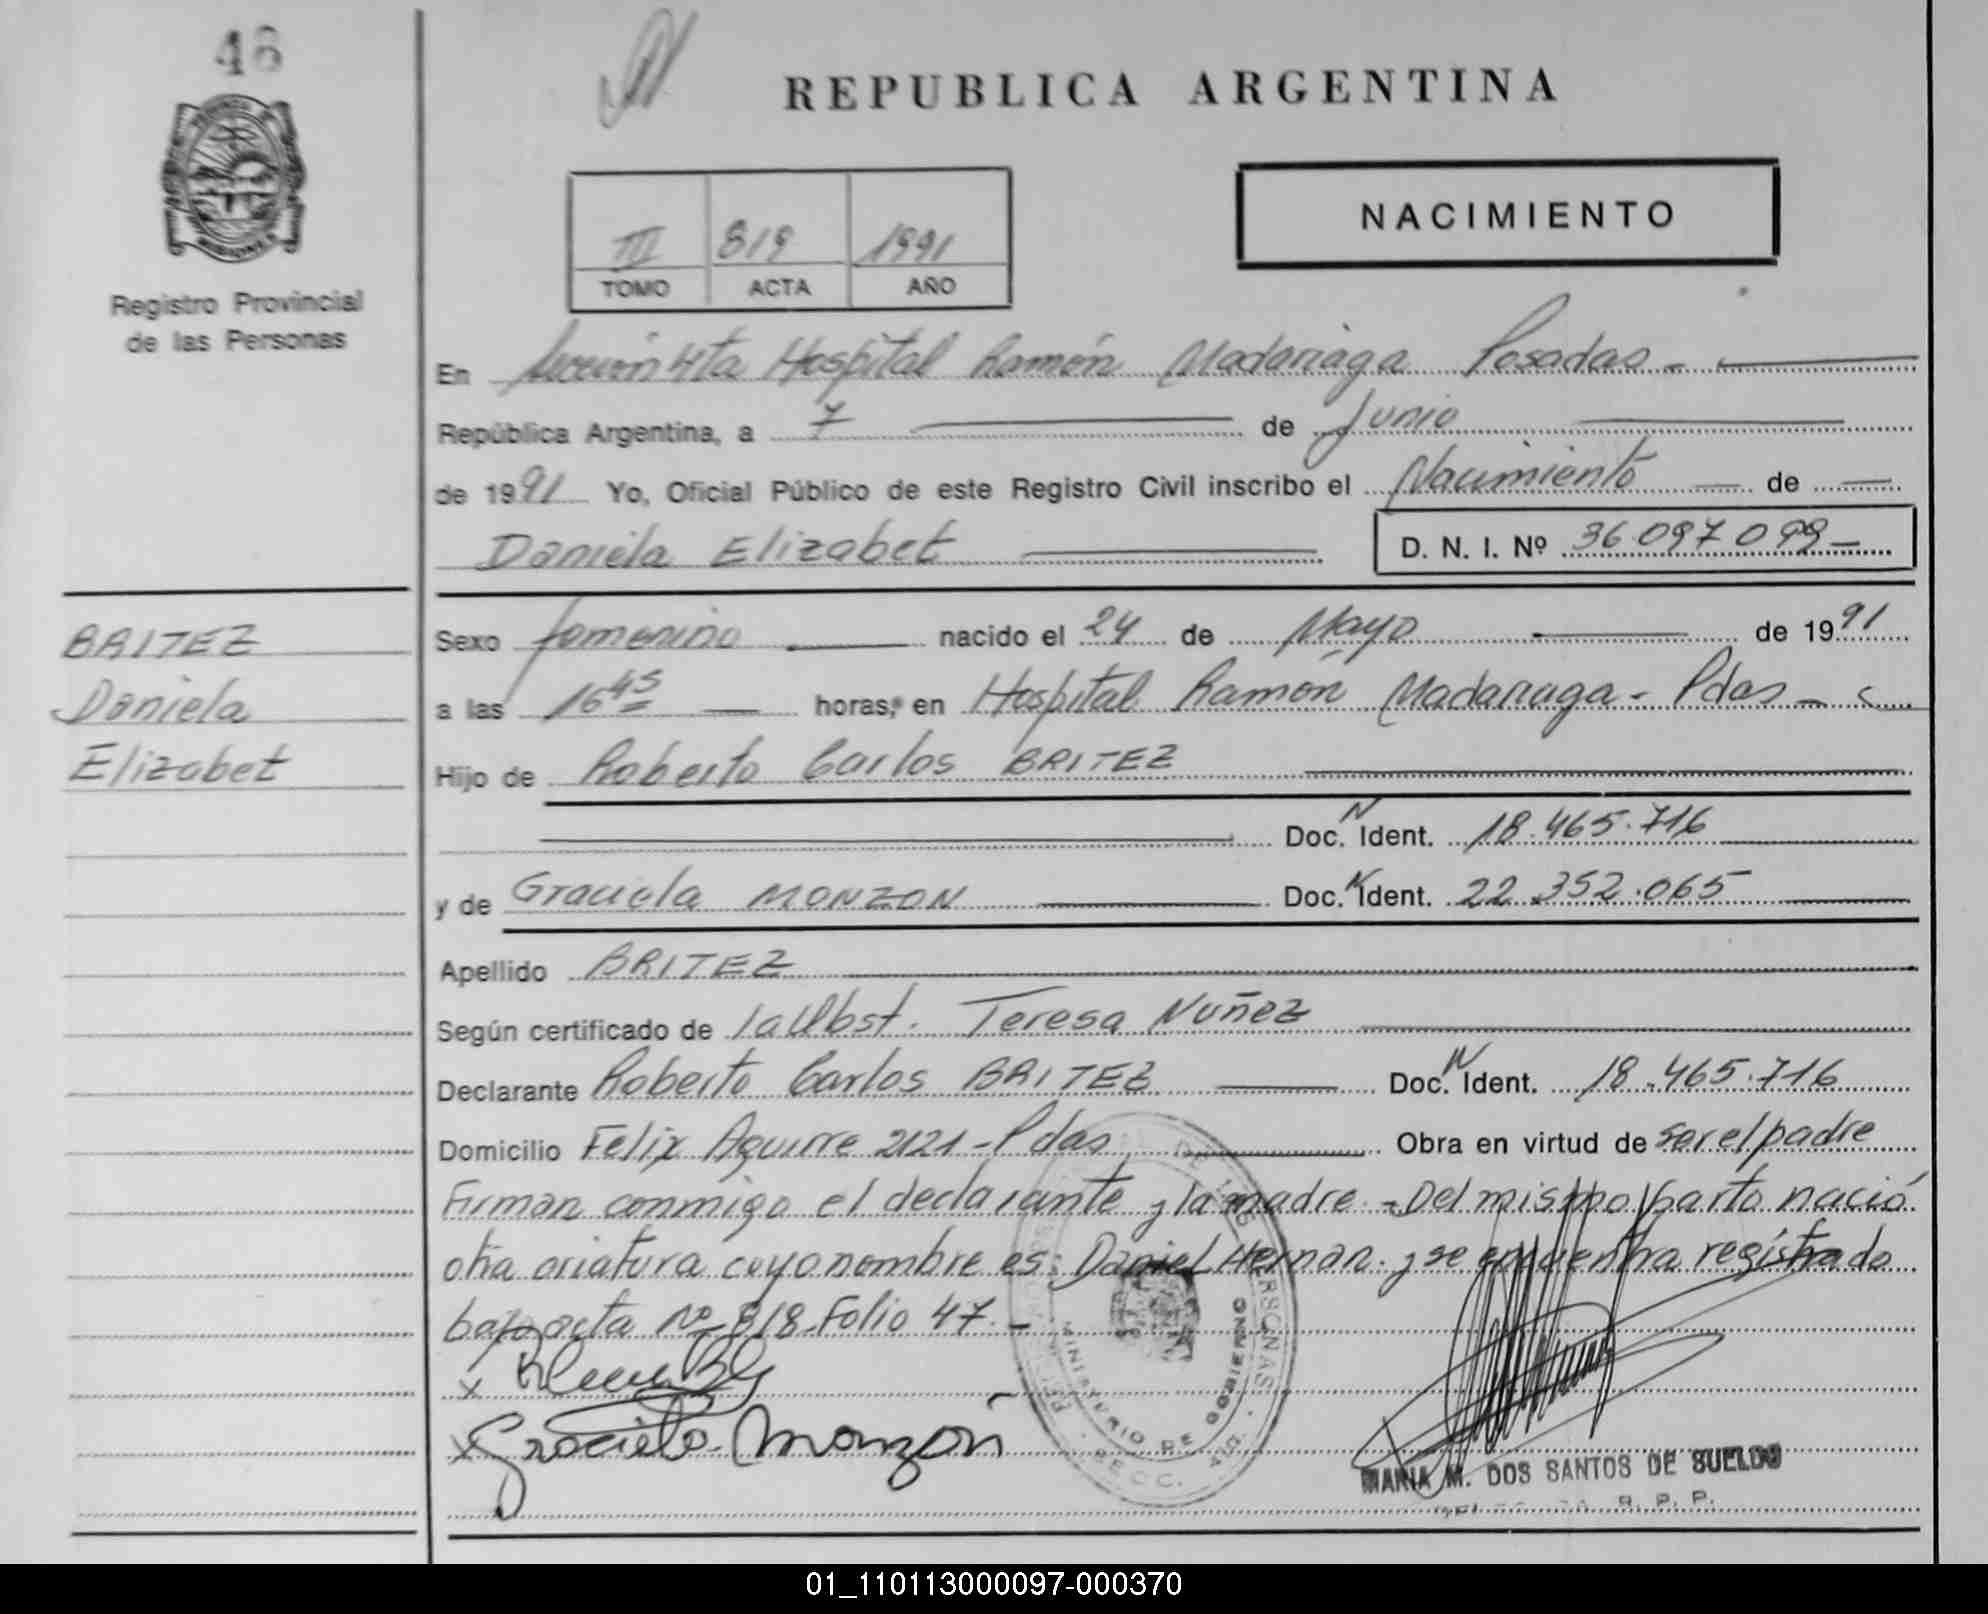 48
REPUBLICA ARGENTINA
NACIMIENTO
III 819 1991
TOMO ACTA AÑO
Registro Provincial
de las Personas
MISIONES
En Sección 4ta Hospital Ramón Madariaga Posadas -
República Argentina, a 7 de Junio
de 1991 Yo, Oficial Público de este Registro Civil inscribo el Nacimiento de
Daniela Elizabet D. N. I. Nº 36 097 099 -
BRITEZ
Daniela
Elizabet
Sexo femenino nacido el 24 de Mayo de 1991
a las 16 45 horas, en Hospital Ramón Madariaga - Pdas -
Hijo de Roberto Carlos BRITEZ
Doc. N Ident. 18.465.716
y de Graciela MONZON Doc. N Ident. 22.352.065
Apellido BRITEZ
Según certificado de la Obst. Teresa Nuñez
Declarante Roberto Carlos BRITEZ Doc. N Ident. 18.465.716
Domicilio Felix Aguirre 2121 - Pdas Obra en virtud de ser el padre
Firman conmigo el declarante y la madre - Del mismo parto nació
otra criatura cuyo nombre es Daniel Hernan. y se encuentra registrado
bajo acta Nº 818 Folio 47 -
x
x Graciela Monzón
DE LAS PERSONAS
MINISTERIO DE GOBIERNO
SECC. 4ta.
MARIA M. DOS SANTOS DE SUELDO
R. P. P.
01_110113000097-000370